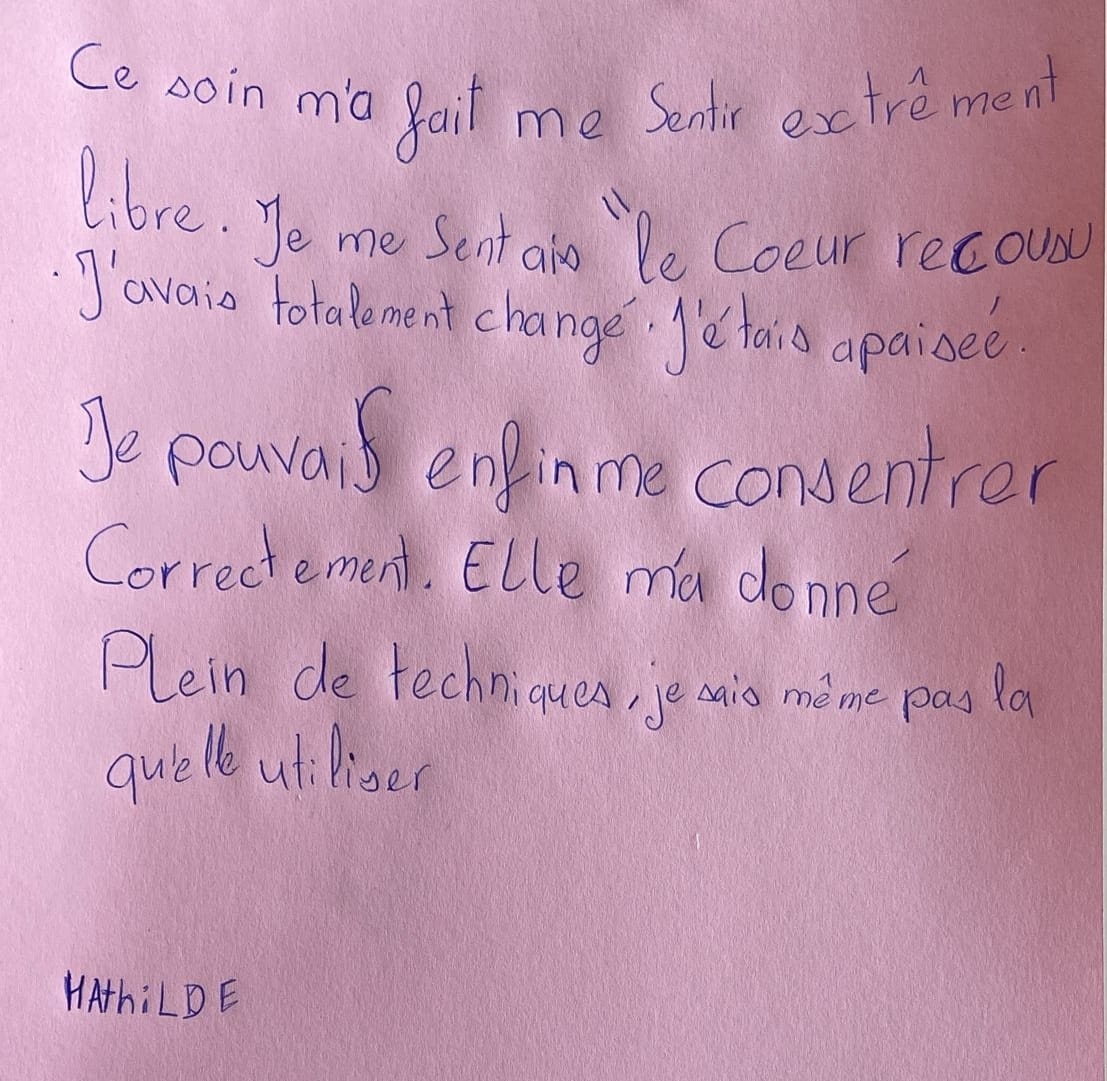 Ce soin m'a fait me Sentir extrêment
libre. Je me Sentais "le Coeur recousu
. J'avais totalement changé. J'étais apaiseé.
Je pouvais enfin me consentrer
Correctement. Elle m'a donné
Plein de techniques, je sais même pas la
qu'elle utiliser
MAthiLDE